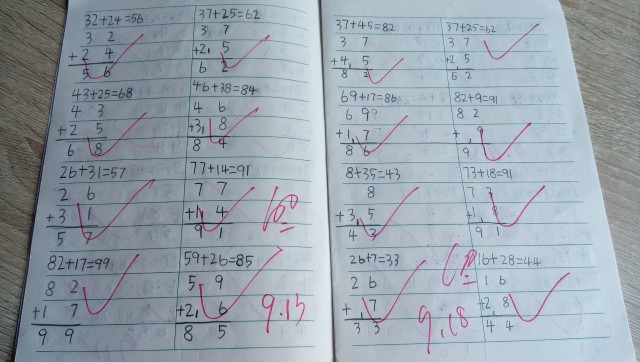 32+24=56
3 2
+2 4
5 6
37+25=62
3 7
+2, 5
6 2
43+25=68
4 3
+2 5
6 8
46+38=84
4 6
+3, 8
8 4
26+31=57
2 6
+3 1
5 7
77+14=91
7 7
+1, 4
9 1
100
82+17=99
8 2
+1 7
9 9
59+26=85
5 9
+2, 6
8 5
9.15
37+45=82
3 7
+4, 5
8 2
37+25=62
3 7
+2, 5
6 2
69+17=86
6 9
+1, 7
8 6
82+9=91
8 2
+, 9
9 1
8+35=43
8
+3, 5
4 3
73+18=91
7 3
+1, 8
9 1
26+7=33
2 6
+, 7
3 3
9.18
16+28=44
1 6
+2, 8
4 4